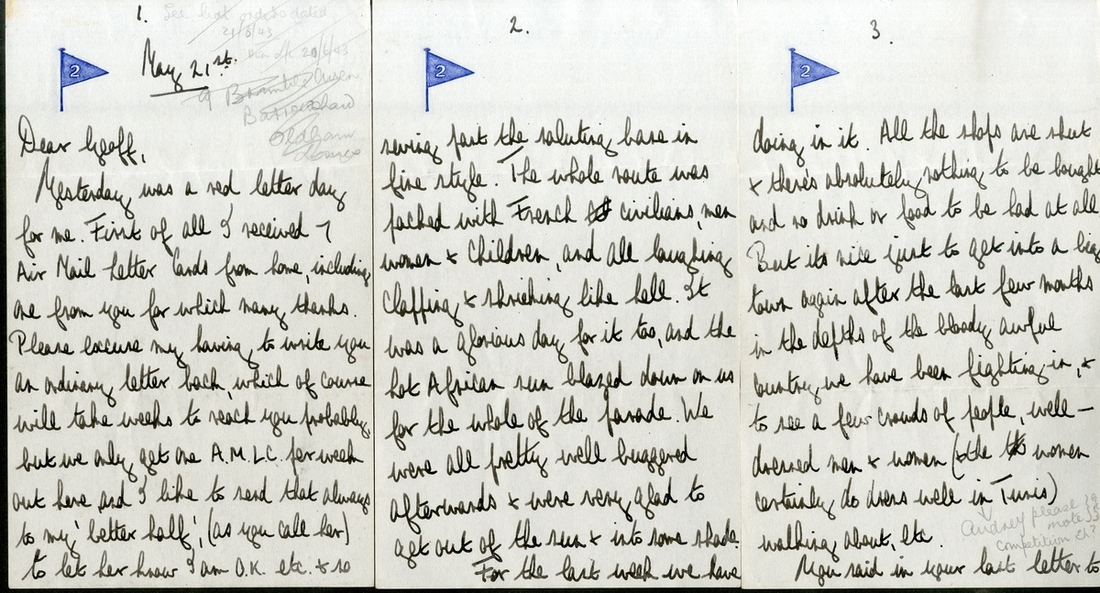 1.
See last orders dated
21/5/43
2
May 21st.
Dear Geoff,
Yesterday was a red letter day
for me. First of all I received 7
Air Mail Letter Cards from home, including
one from you for which many thanks.
Please excuse my having to write you
an ordinary letter back, which of course
will take weeks to reach you probably,
but we only get one A.M.L.C. per week
out here and I like to send that always
to my 'better half', (as you call her)
to let her know I am O.K. etc. & so
2.
2
swing past the saluting base in
fine style. The whole route was
packed with French civilians, men
women & children, and all laughing
clapping & shrieking like hell. It
was a glorious day for it too, and the
hot African sun blazed down on us
for the whole of the parade. We
were all pretty well buggered
afterwards & were very glad to
get out of the sun & into some shade.
For the last week we have
3.
2
doing in it. All the shops are shut
& there's absolutely nothing to be bought
and no drink or food to be had at all
But its nice just to get into a big
town again after the last few months
in the depths of the bloody awful
country we have been fighting in, &
to see a few crowds of people, well-
dressed men & women (& the women
certainly do dress well in Tunis)
walking about, etc.
Audrey please
note
competition eh?
You said in your last letter to